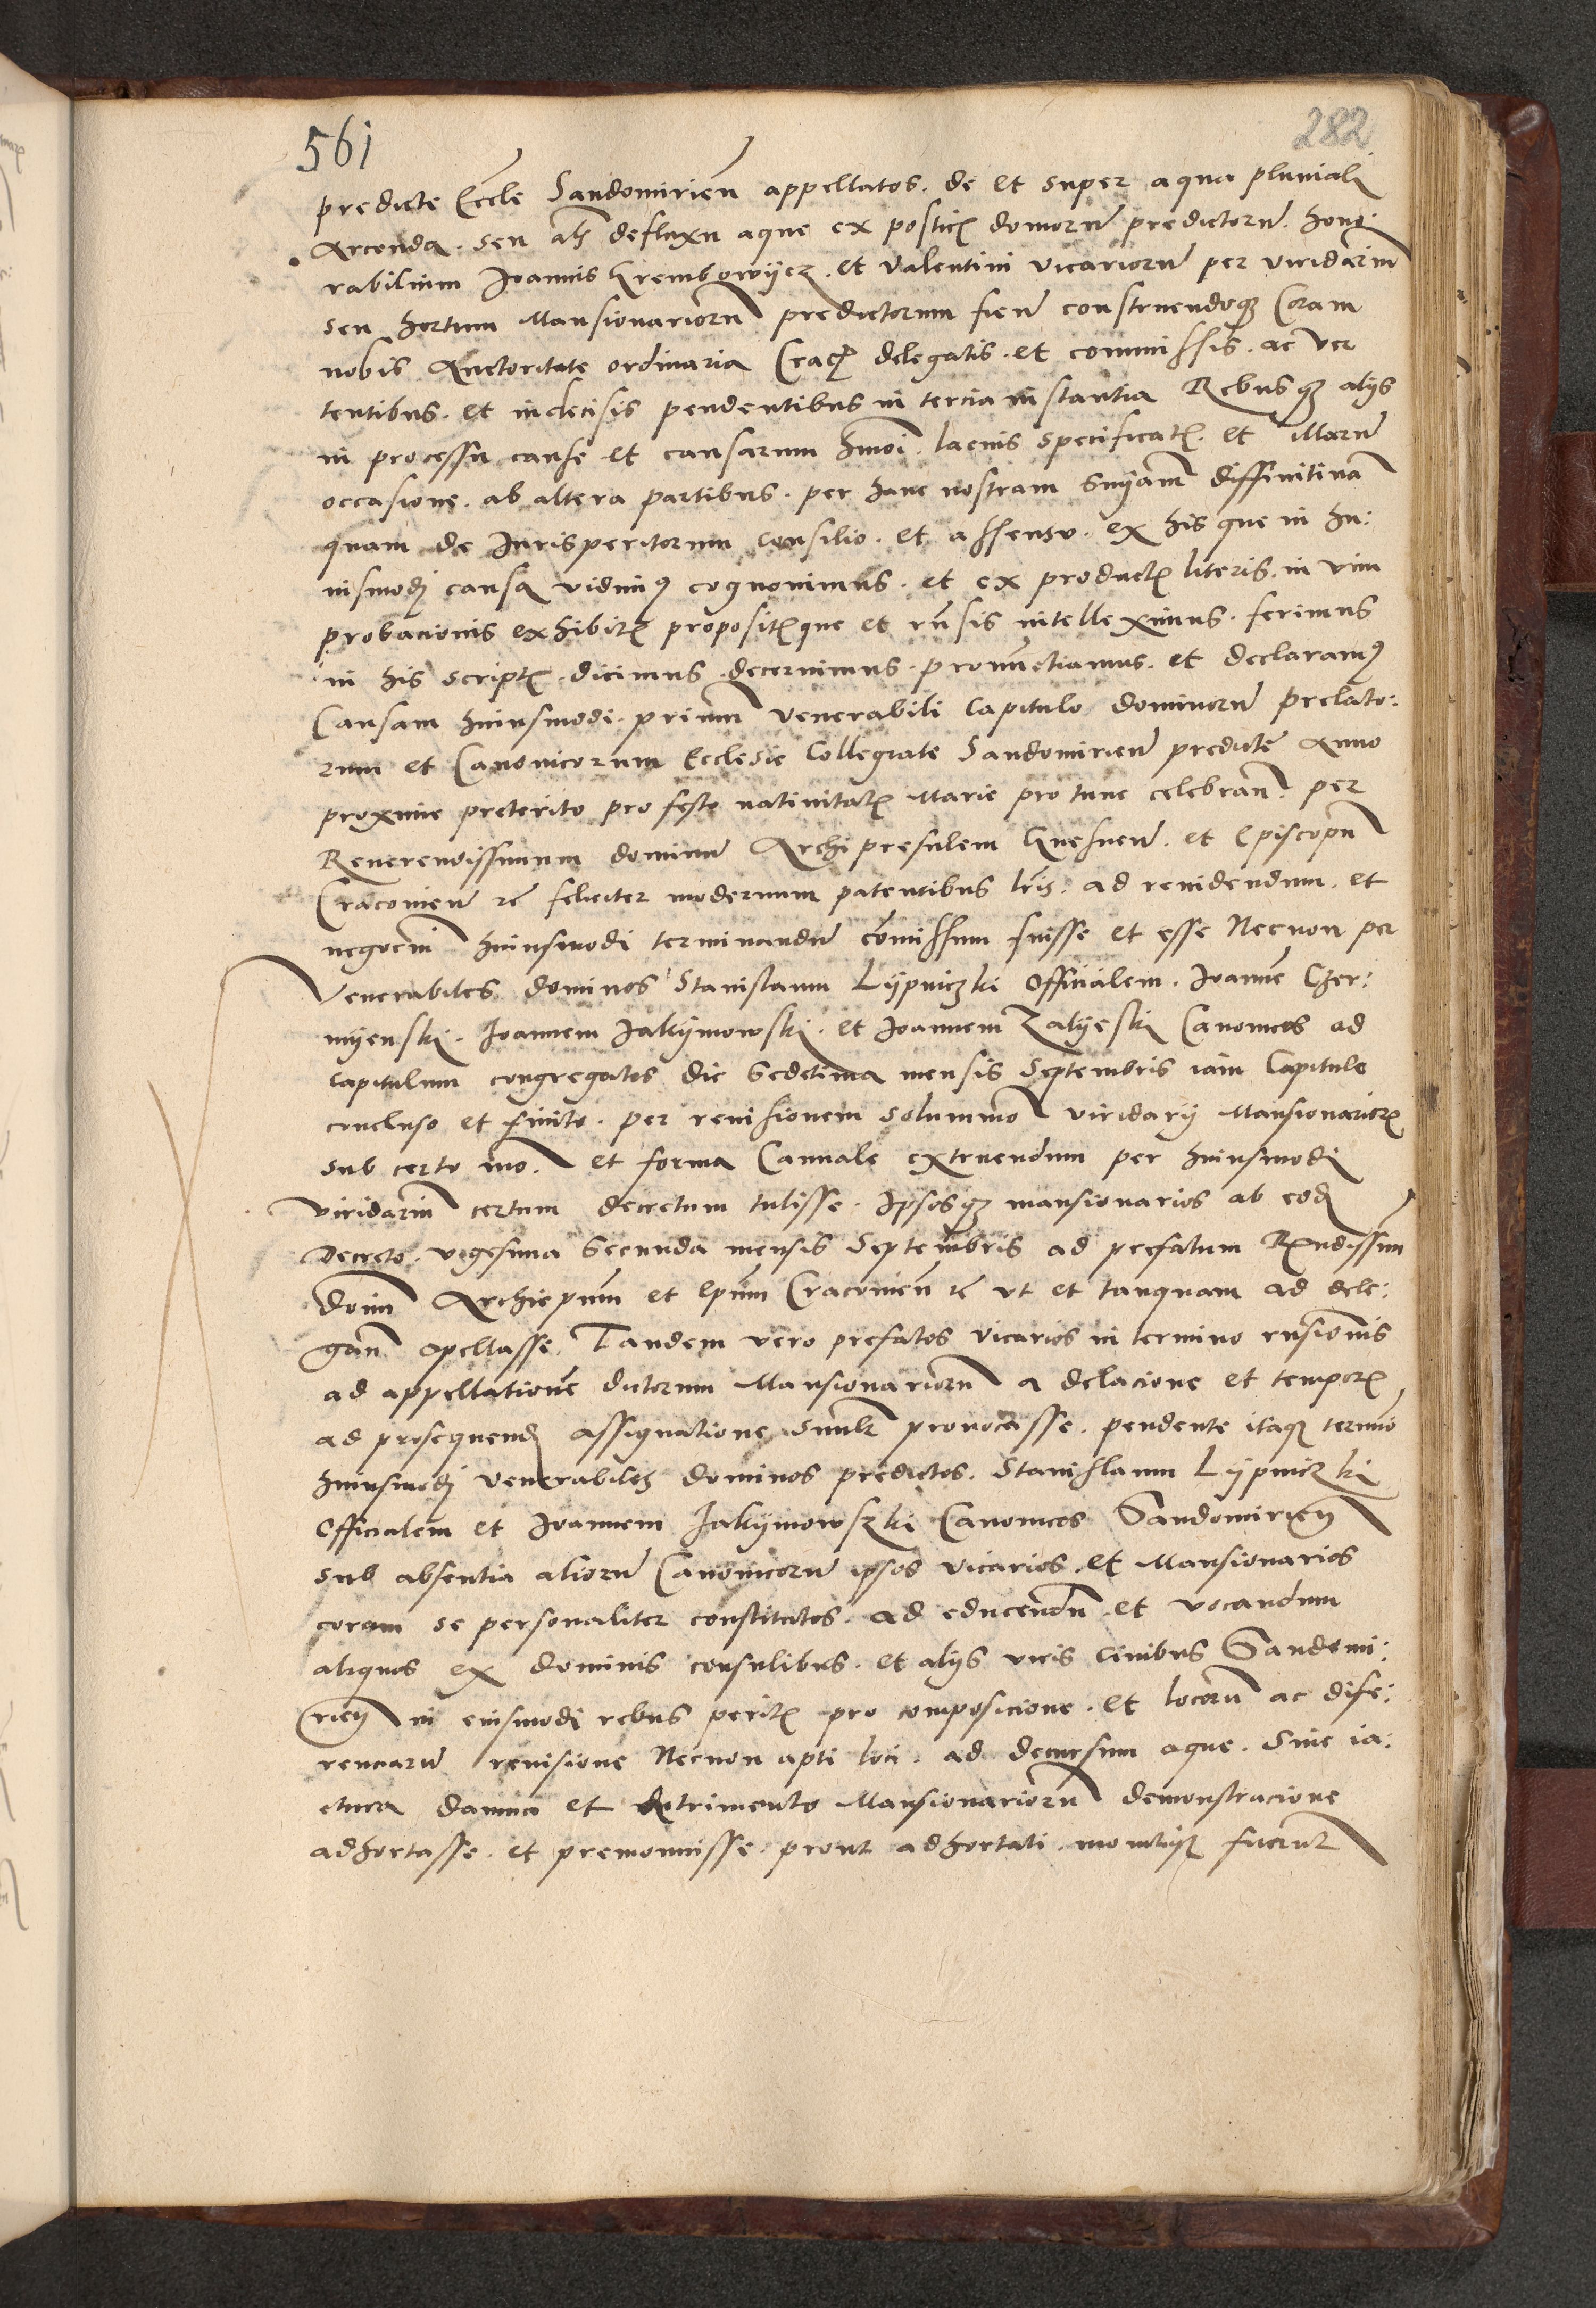 561
282
predicte Eccle Sandomirien appellatos. de et super aqua pluviali
Arcenda. seu als defluxu aque ex posticis domorum predictorum. hono:
rabilium Joannis Grembowyecz. et Valentini vicariorum per viridarium
seu hortum Mansionariorum predictorum fien construendoque Coram
nobis Auctoritate ordinaria Crac delegatis. et commissis. ac ver
tentibus. et indecisis pendentibus in tercia instantia Rebusque alijs
in processu cause et causarum hmoi. lacius specificatis. et illarum
occasione. ab altera partibus. per hanc nostram Snyam diffinitivam
quam de Jurisperitorum consilio. et assensu. ex his que in hu:
iusmodi causa vidimus cognovimus. et ex productis literis. in vim
probacionis exhibitis propositisque et rnsis intelleximus. ferimus
in his scriptis. dicimus. decernimus. pronunctiamus. et declaramus
Causam huiusmodi. primum Venerabili Capitulo dominorum prelato:
rum et Canonicorum Ecclesie Collegiate Sandomirien predicte Anno
proxime preterito pro festo nativitatis Marie pro tunc celebran. per
Reverendissimum dominum Archipresulem Gnesnen. et Episcopum
Cracovien etc feliciter modernum patentibus lris. ad revidendum. et
negocium huiusmodi terminandum comissum fuisse et esse Necnon per
Venerabiles dominos Stanislaum Lypniczki Officialem. Joannem Czer:
nyenski. Joannem Jakymowski. et Joannem Zalyeski Canonicos ad
Capitulum congregatos die Sedecima mensis Septembris iam Capitulo
concluso et finito. per revisionem solummo viridarij Mansionariorum
sub certo mo. et forma Cannale extruendum per huiusmodi
viridarium certum decretum tulisse. Ipsosque mansionarios ab eodem
Decreto. vigesima Secunda mensis Septembris ad prefatum Rendissimum
Dominum Archiepum et Epum Cracovien etc ut et tanquam ad dele:
gan apellasse. Tandem vero prefatos vicarios in termino rnsionis
ad appellationem dictorum Mansionariorum a delacione et temporis
ad prosequendum assignatione simulr provocasse. pendente itaque termino
huiusmodi Venerabiles dominos predictos. Stanislaum Lypniczki
Officialem et Joannem Jakymowszki Canonicos Sandomirien
sub absentia aliorum Canonicorum ipsos vicarios. et Mansionarios
coram se personaliter constitutos. ad educendum et vocandum
aliquos ex dominis consulibus. et alijs viris Civibus Sandomi:
rien in eiusmodi rebus peritis pro composicione. et locorum ac dife:
renciarum revisione Necnon apti loci. ad decursum aque. Sine ia:
ctura damno et detrimento Mansionariorum demonstracione
adhortasse. et premonuisse. prout adhortati. monitique fuerunt